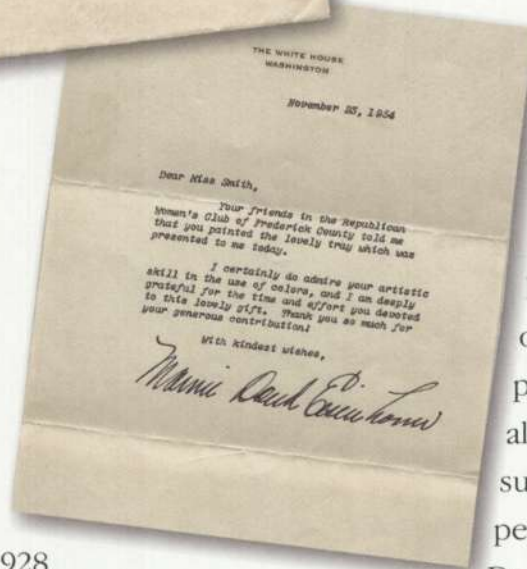 THE WHITE HOUSE
WASHINGTON
Dear Miss Smith,
Your friends in the Republican
Women's Club of Frederick County told me
that you painted the lovely tray which was
presented to me today.
I certainly do admire your artistic
skill in the use of colors, and I am deeply
grateful for the time and effort you devoted
to this lovely gift. Thank you so much for
your generous contribution!
With kindest wishes,
Mamie Doud Eisenhower
November , 1954
928
p
al
su
pe